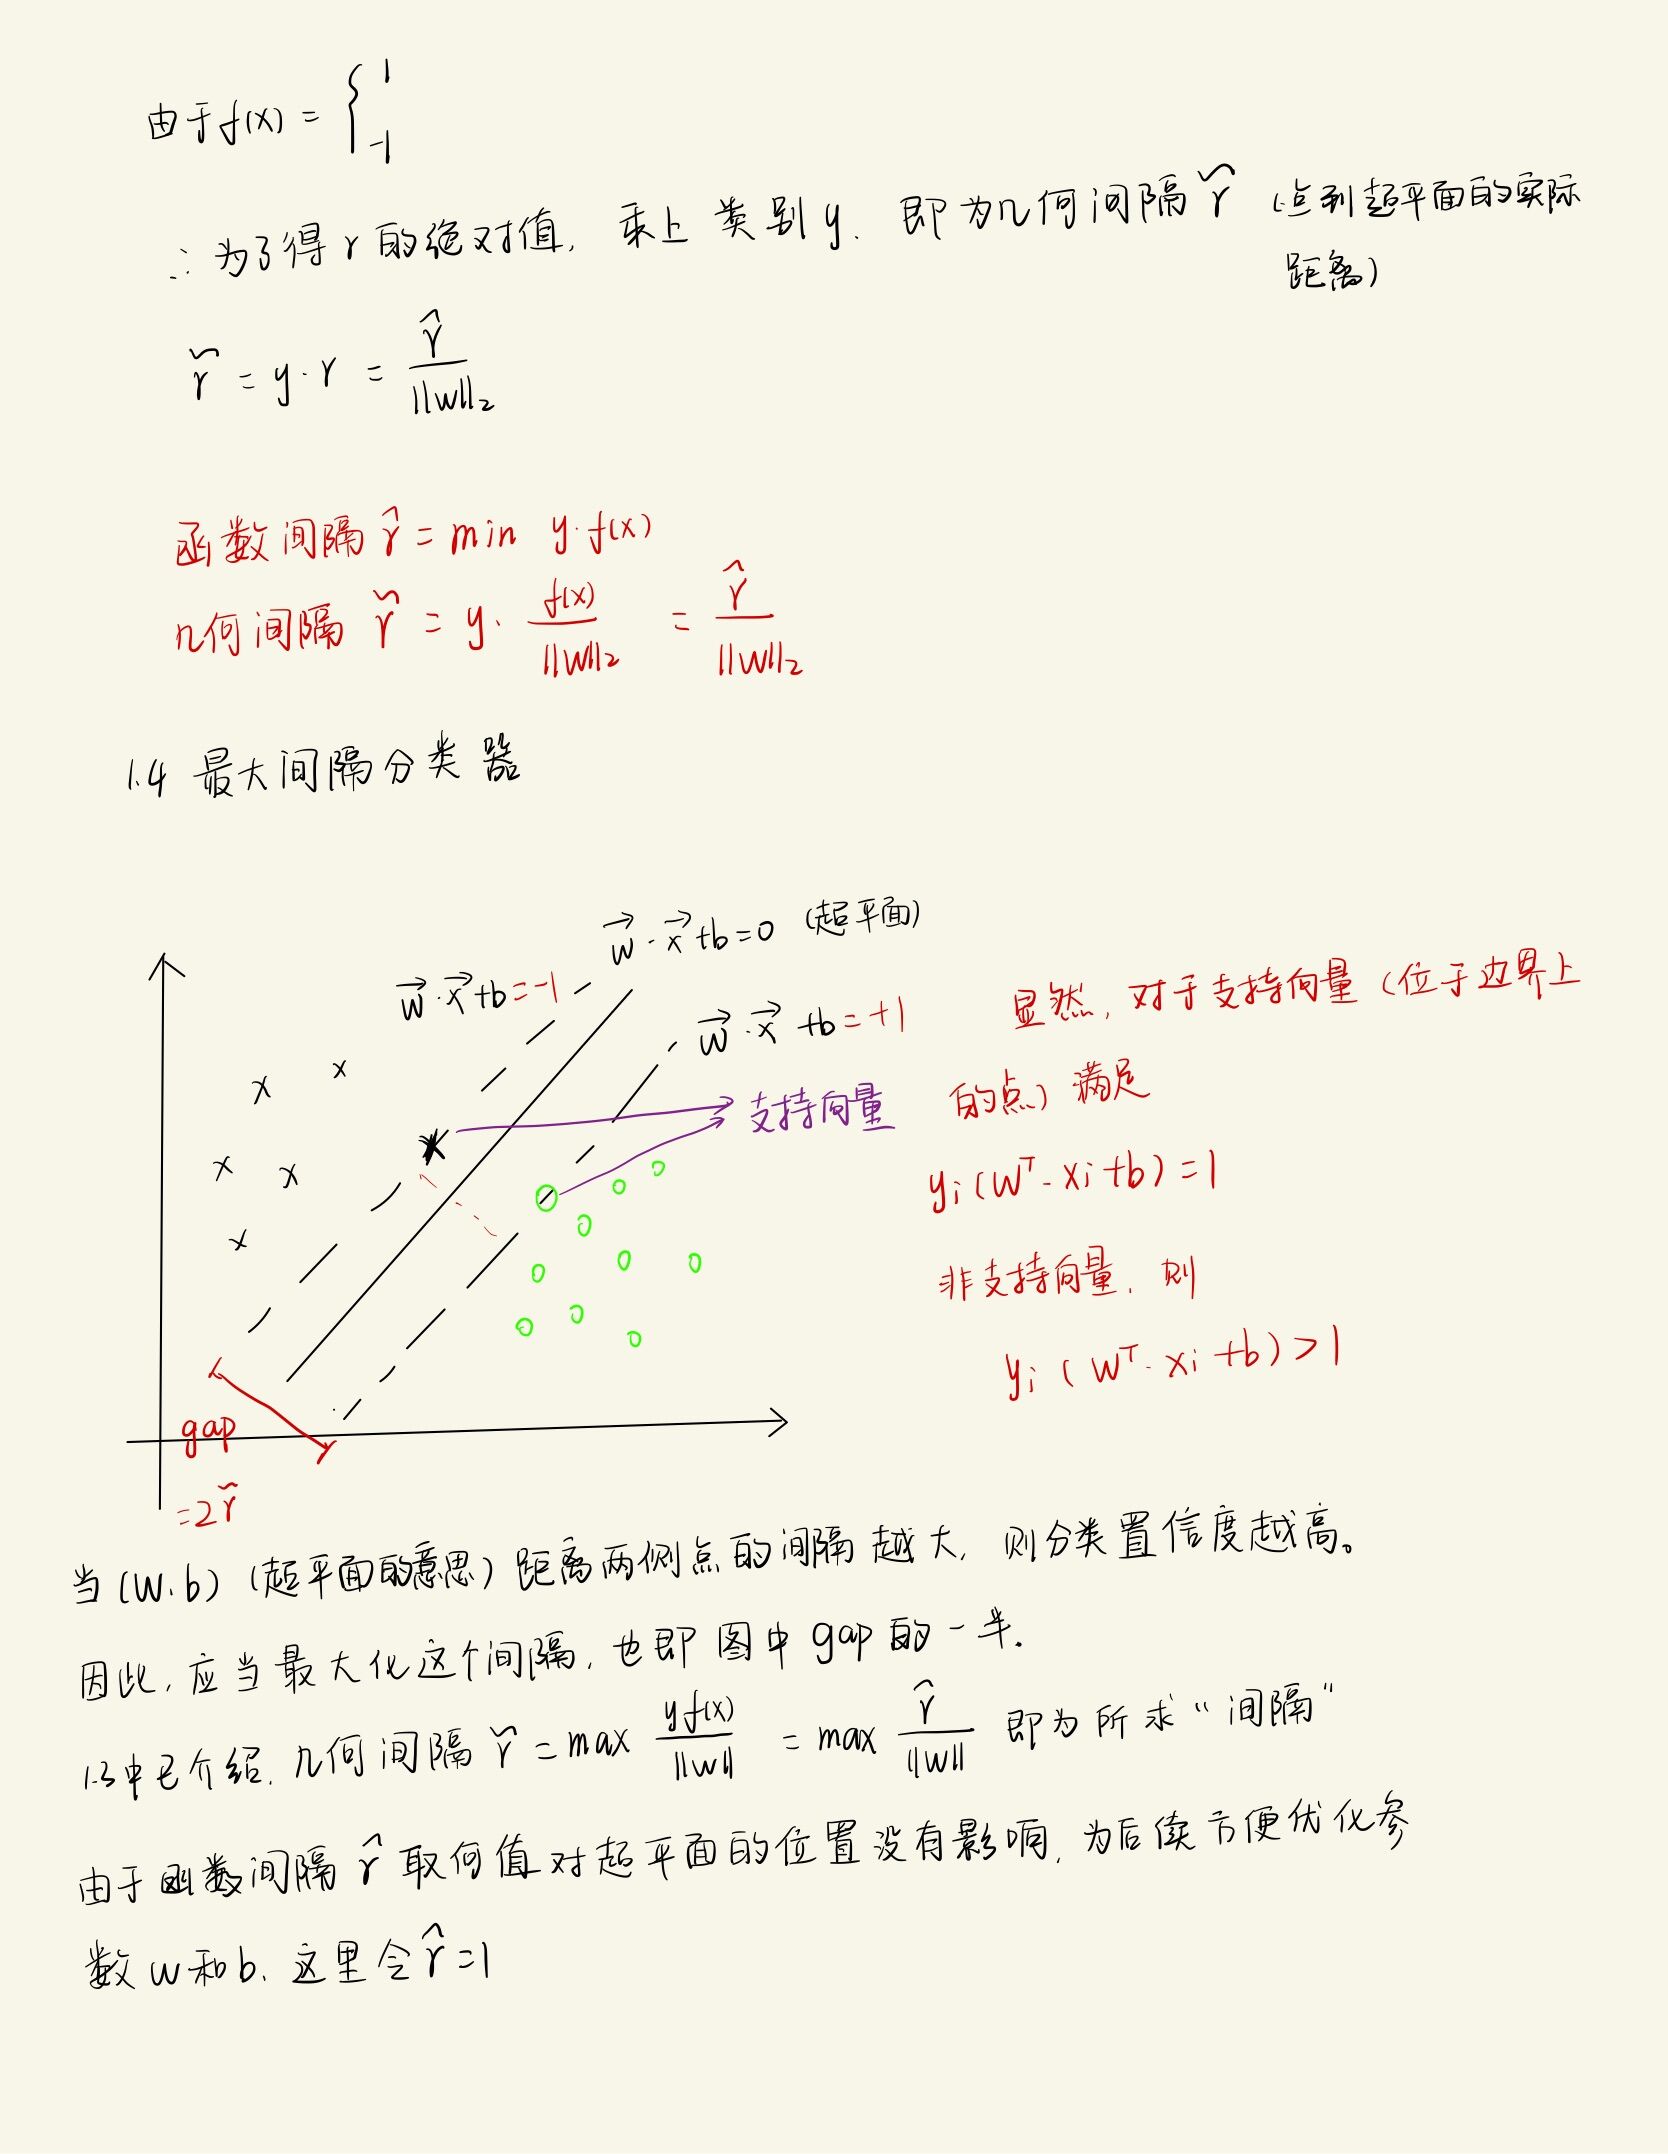 由于f(x) = { 1
-1
∴ 为了得 r 的绝对值, 乘上 类别 y. 即为几何间隔 r̃ (点到超平面的实际
距离)
r̃ = y·r = r̂ / ||w||₂
函数间隔 r̂ = min y·f(x)
几何间隔 r̃ = y· f(x) / ||w||₂ = r̂ / ||w||₂
1.4 最大间隔分类器
w⃗·x⃗+b=0 (超平面)
w⃗·x⃗+b=-1
w⃗·x⃗+b=+1
支持向量
显然, 对于支持向量 (位于边界上
的点) 满足
yᵢ(wᵀ·xᵢ+b)=1
非支持向量, 则
yᵢ(wᵀ·xᵢ+b)>1
gap
=2r̃
当(w,b) (超平面的意思) 距离两侧点的间隔越大, 则分类置信度越高。
因此, 应当最大化这个间隔, 也即图中gap的一半.
1.3中已介绍, 几何间隔 r̃ = max yf(x) / ||w|| = max r̂ / ||w|| 即为所求“间隔”
由于函数间隔 r̂ 取何值对超平面的位置没有影响, 为后续方便优化参
数w和b, 这里令r̂=1